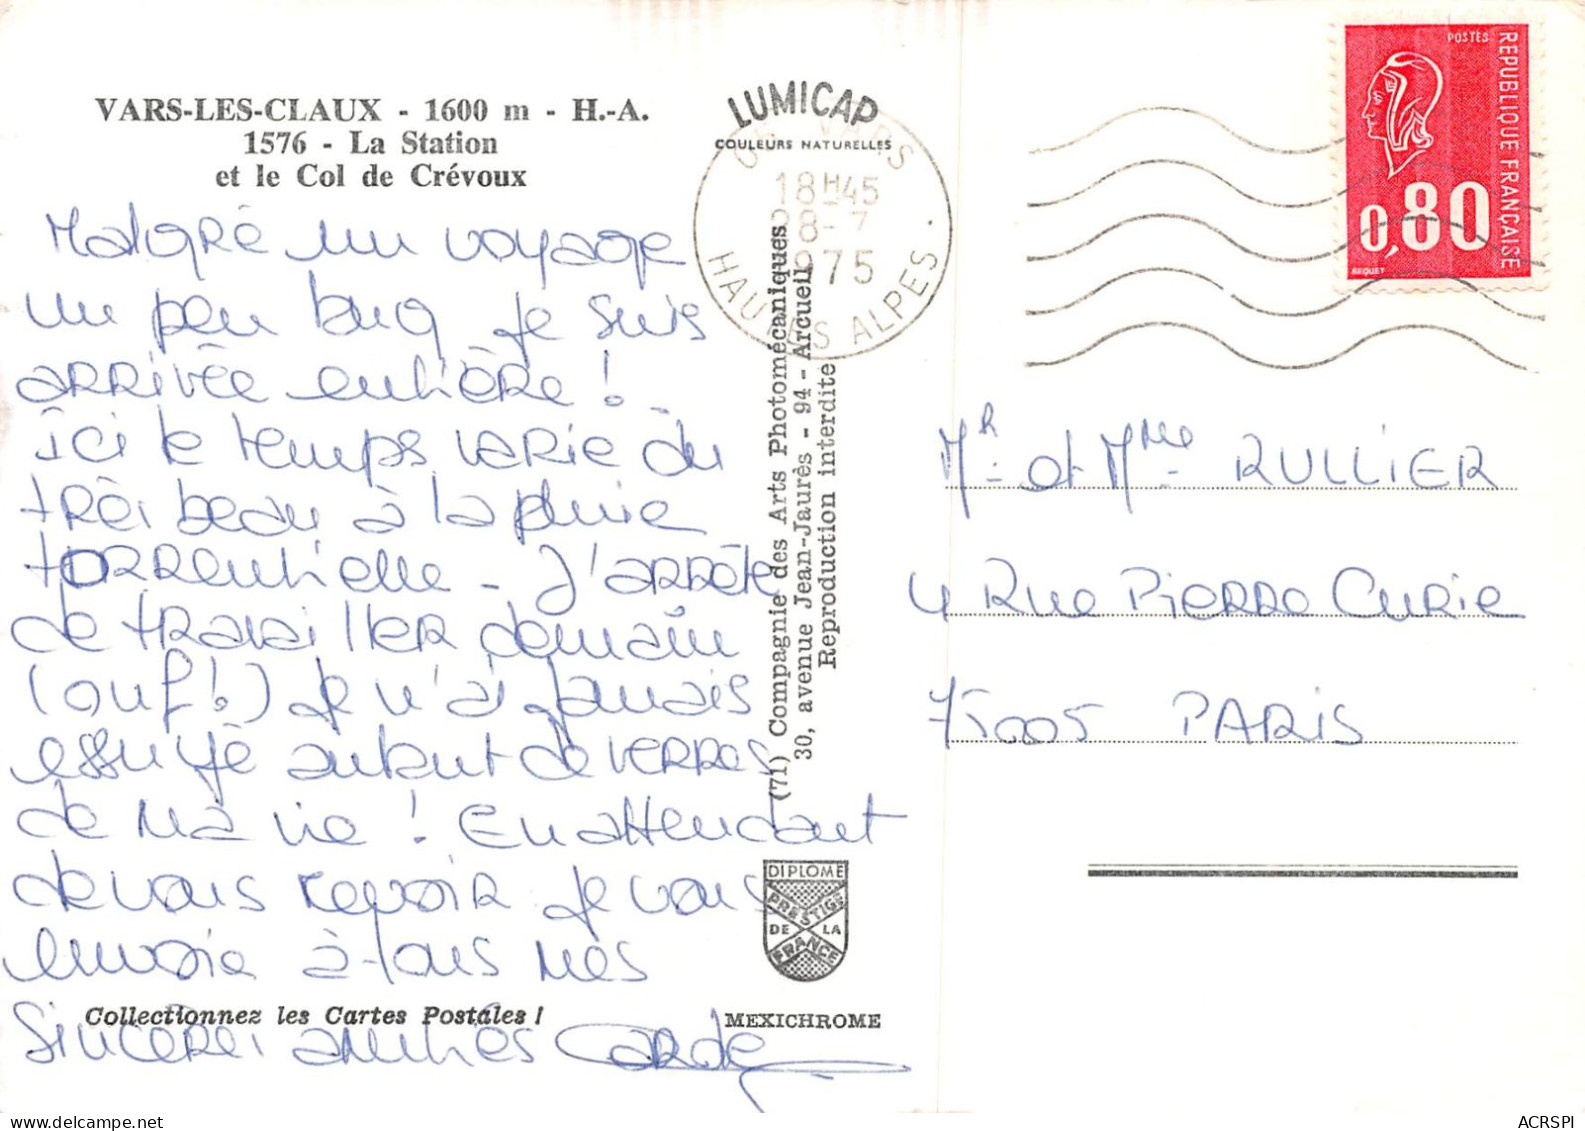 VARS-LES-CLAUX - 1600 m - H.-A.
1576 - La Station
et le Col de Crévoux
Malgré un voyage
un peu long je suis
arrivée entière !
Ici le temps varie du
très beau à la pluie
torrentielle - J'arrête
de travailler demain
(ouf !) je n'ai jamais
essuyé autant de verres
de ma vie ! En attendant
de vous revoir je vous
envoie à tous mes
sincères amitiés
Collectionnez les Cartes Postales !
LUMICAP
COULEURS NATURELLES
05 VARS
18H45
28-7
1975
HAUTES ALPES
(71) Compagnie des Arts Photomécaniques
30, avenue Jean-Jaurès - 94 - Arcueil
Reproduction interdite
DIPLOME
PRESTIGE
DE LA
FRANCE
MEXICHROME
POSTES
REPUBLIQUE FRANÇAISE
0,80
BEQUET
Mr et Mme RULLIER
4 Rue Pierre Curie
75005 PARIS
ACRSPI